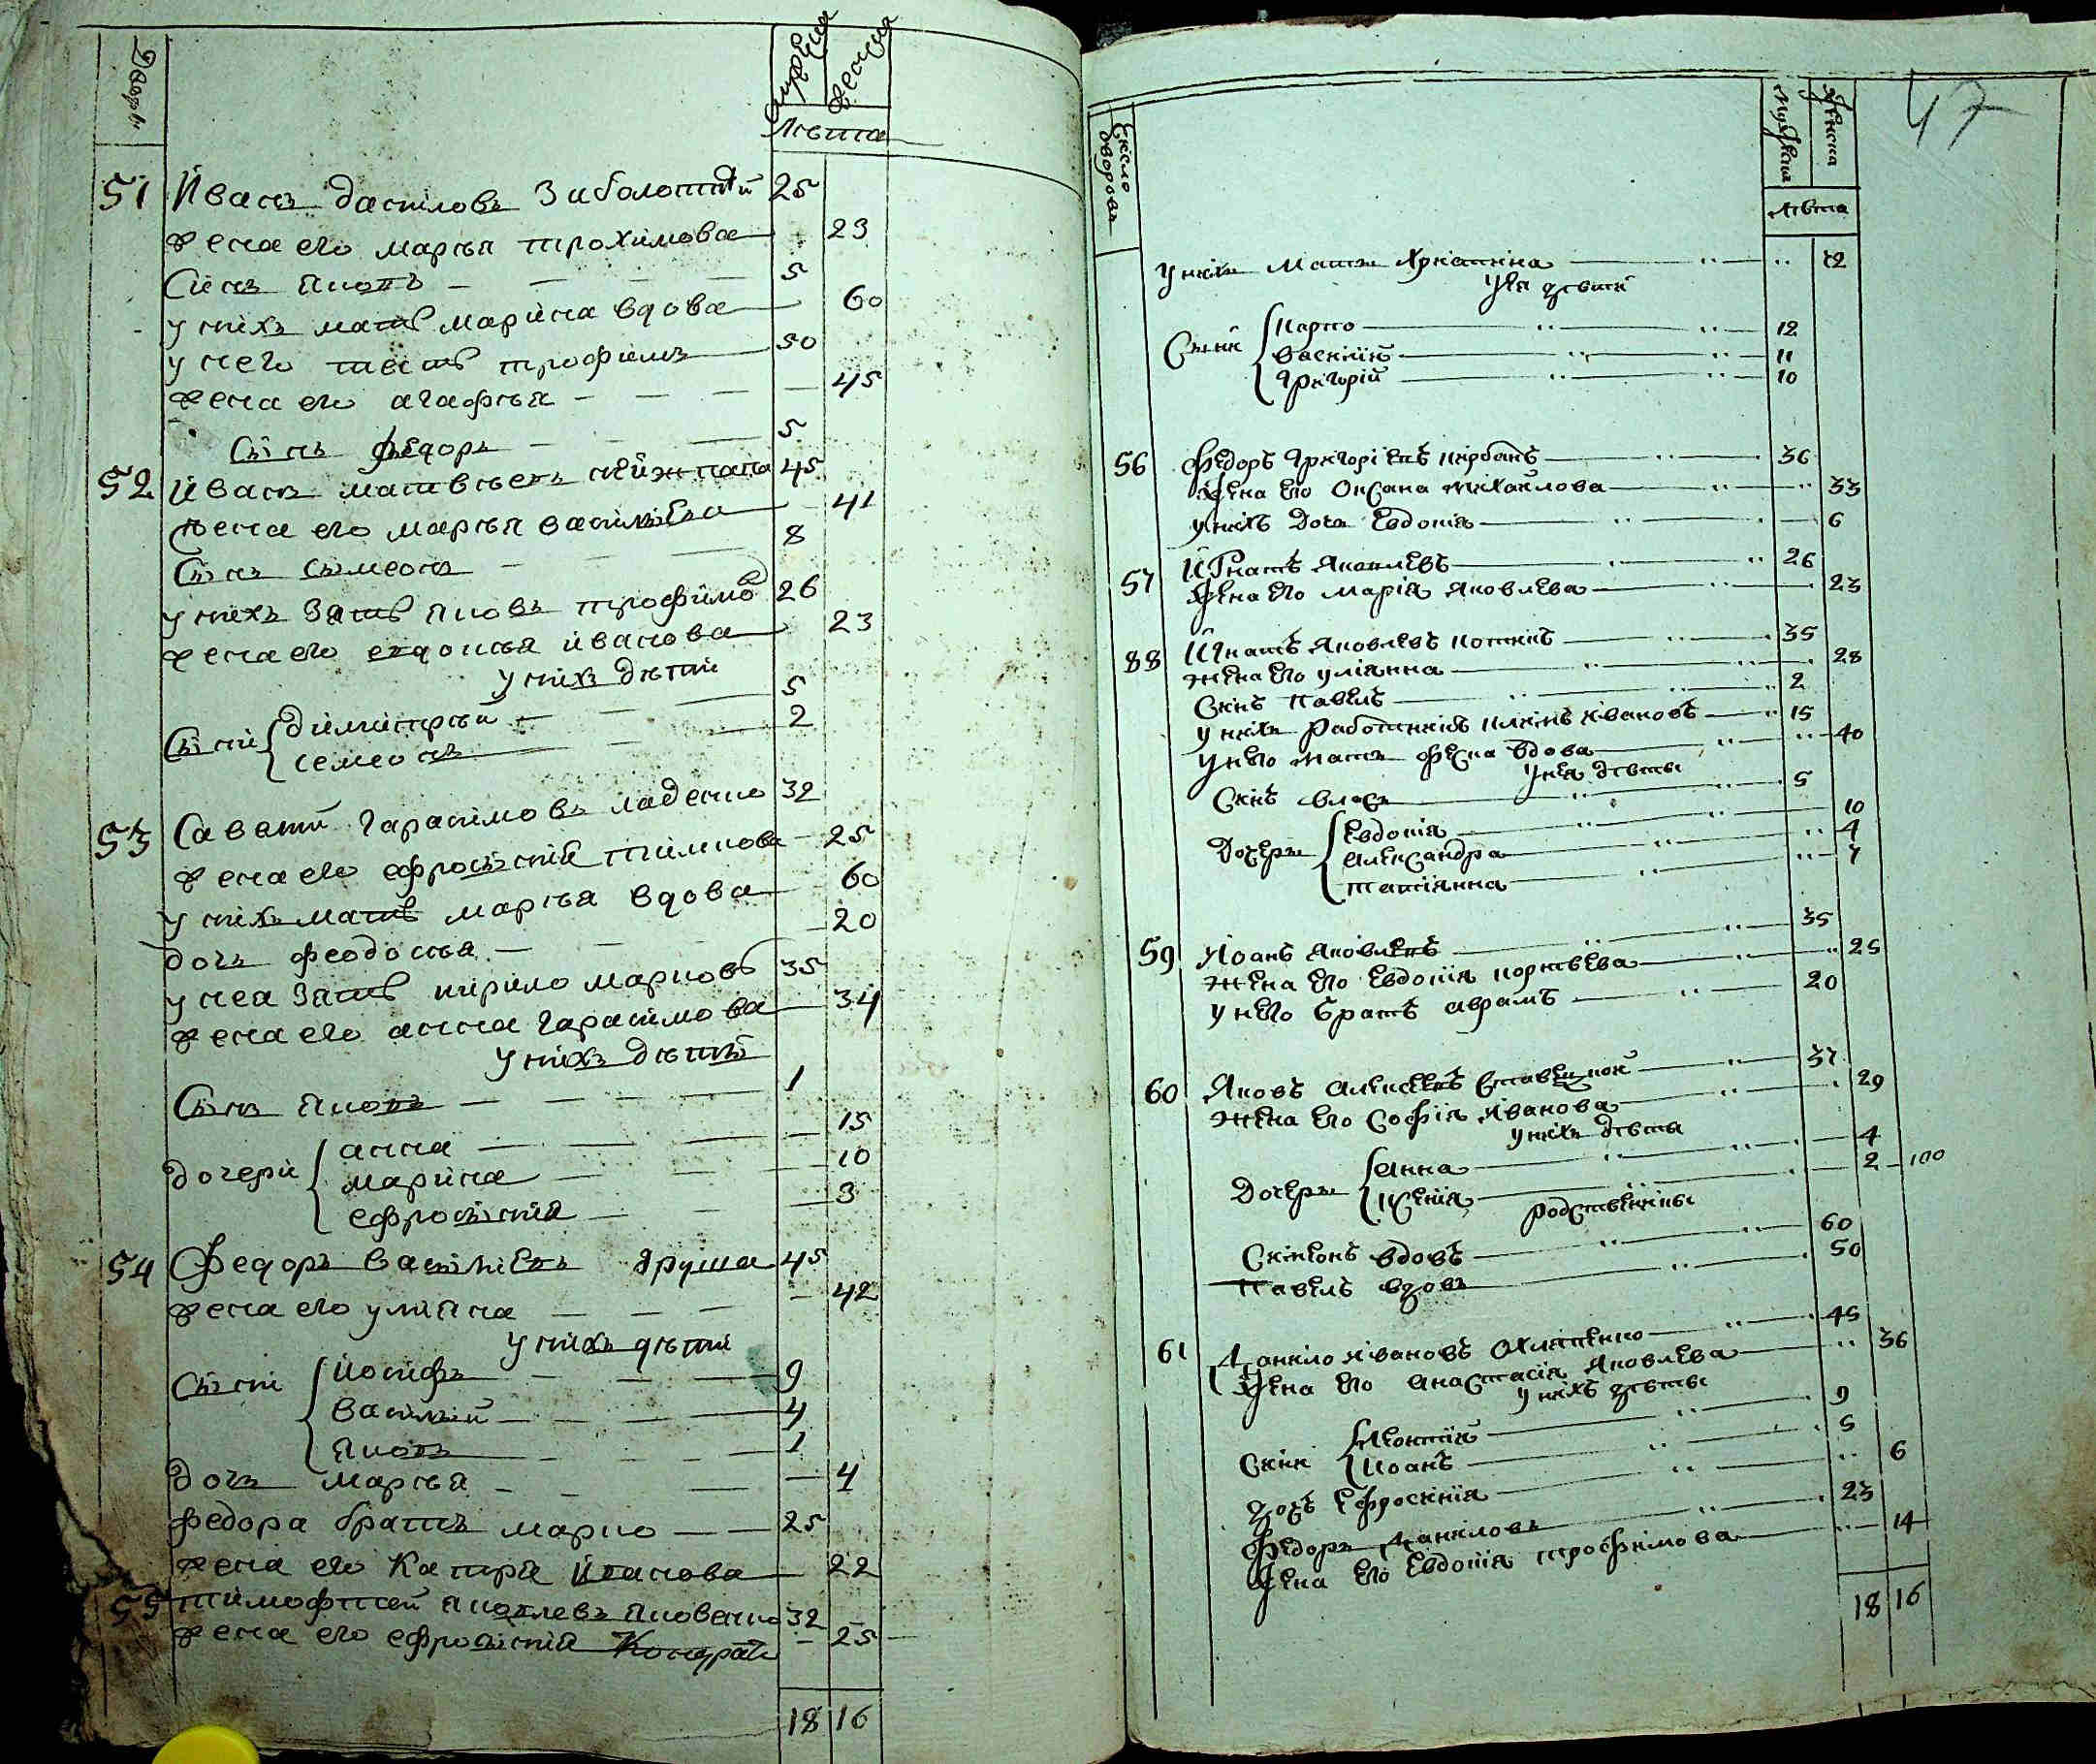 Дворъ
мужска
женска
Лѣта
51 Йванъ данѣловъ Заболотнй 25
жена его марѣя трохимова 23
Сынъ яковъ 5
у нихъ мать марина вдова 60
у него тесть трофимъ 50
жена его агафѣя 45
Сынъ федоръ 5
52 Йванъ матвѣевъ 45
жена его марѣя васильева 41
Сынъ сымеонъ 8
у нихъ зать яковъ трофимовъ 26
жена его евдокѣя иванова 23
у нихъ дѣти
Сыни { димитрѣй 5
семеонъ 2
53 Саватй гарасимовъ ладенко 32
жена его ефросинѣя 25
у нихъ мать марѣя вдова 60
дочъ феодосѣя 20
у неа зать кирило марковъ 35
жена его анна гарасимова 34
у нихъ дѣти
Сынъ яковъ 1
дочери { анна 15
марина 10
ефросиния 3
54 Федоръ васильевъ друша 45
жена его улияна 42
у нихъ дѣти
Сыни { йосифъ 9
василий 4
яковъ 1
дочъ марѣя 4
федора братъ марко 25
жена его Катря иванова 22
55 тимофтей яковлевъ яковенко 32
жена его ефросиния Кондрати 25
18 16
47
число дворовъ
мужска
женска
лѣта
у нихъ мать христина 12
у нея дѣти
Сыни { марко 12
василій 11
григорій 10
56 федоръ григоріевъ курбанъ 36
жена его оксана михайлова 33
у нихъ дочъ евдокія 6
57 Игнатъ яковлевъ 26
жена его марія яковлева 23
88 Игнатъ яковлевъ 35
жена его уліянна 28
Синъ павелъ 2
у нихъ работникъ иванов 15
у него мать фена вдова 40
у нея дѣты
Синъ власъ 5
Дочеры { евдокія 10
александра 4
татіянна 7
59 йоанъ яковлевъ 35
жена его евдокія корнѣева 25
у него братъ аврамъ 20
60 Яковъ алексѣевъ 37
жена его софія иванова 29
у нихъ дѣты
Дочеры { анна 4
ксенія 2 100
родственники
Симеонъ вдовъ 60
павелъ вдовъ 50
61 Данило ивановъ 45
жена его анастасія яковлева 36
у нихъ дѣты
Сини { леонтій 9
йоанъ 5
дочъ ефросинія 6
федоръ даниловъ 23
жена его евдокія трофимова 14
18 16